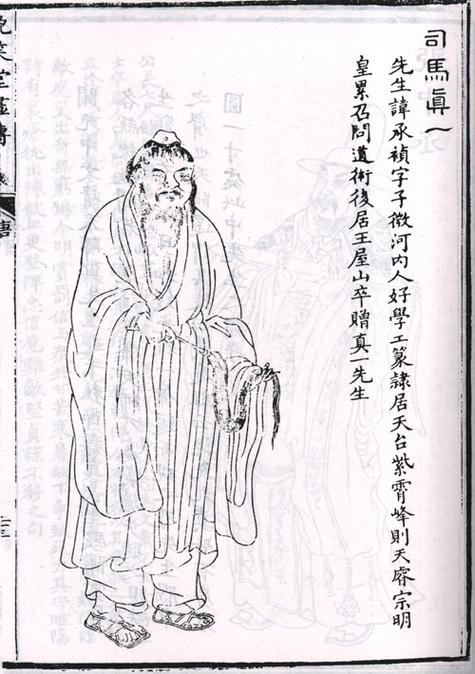 司馬真一
先生諱承禎字子微河内人好學工篆隷居天台紫霄峰則天睿宗明
皇累召問道術後居王屋山卒贈真一先生
晩笑堂畫傳
唐